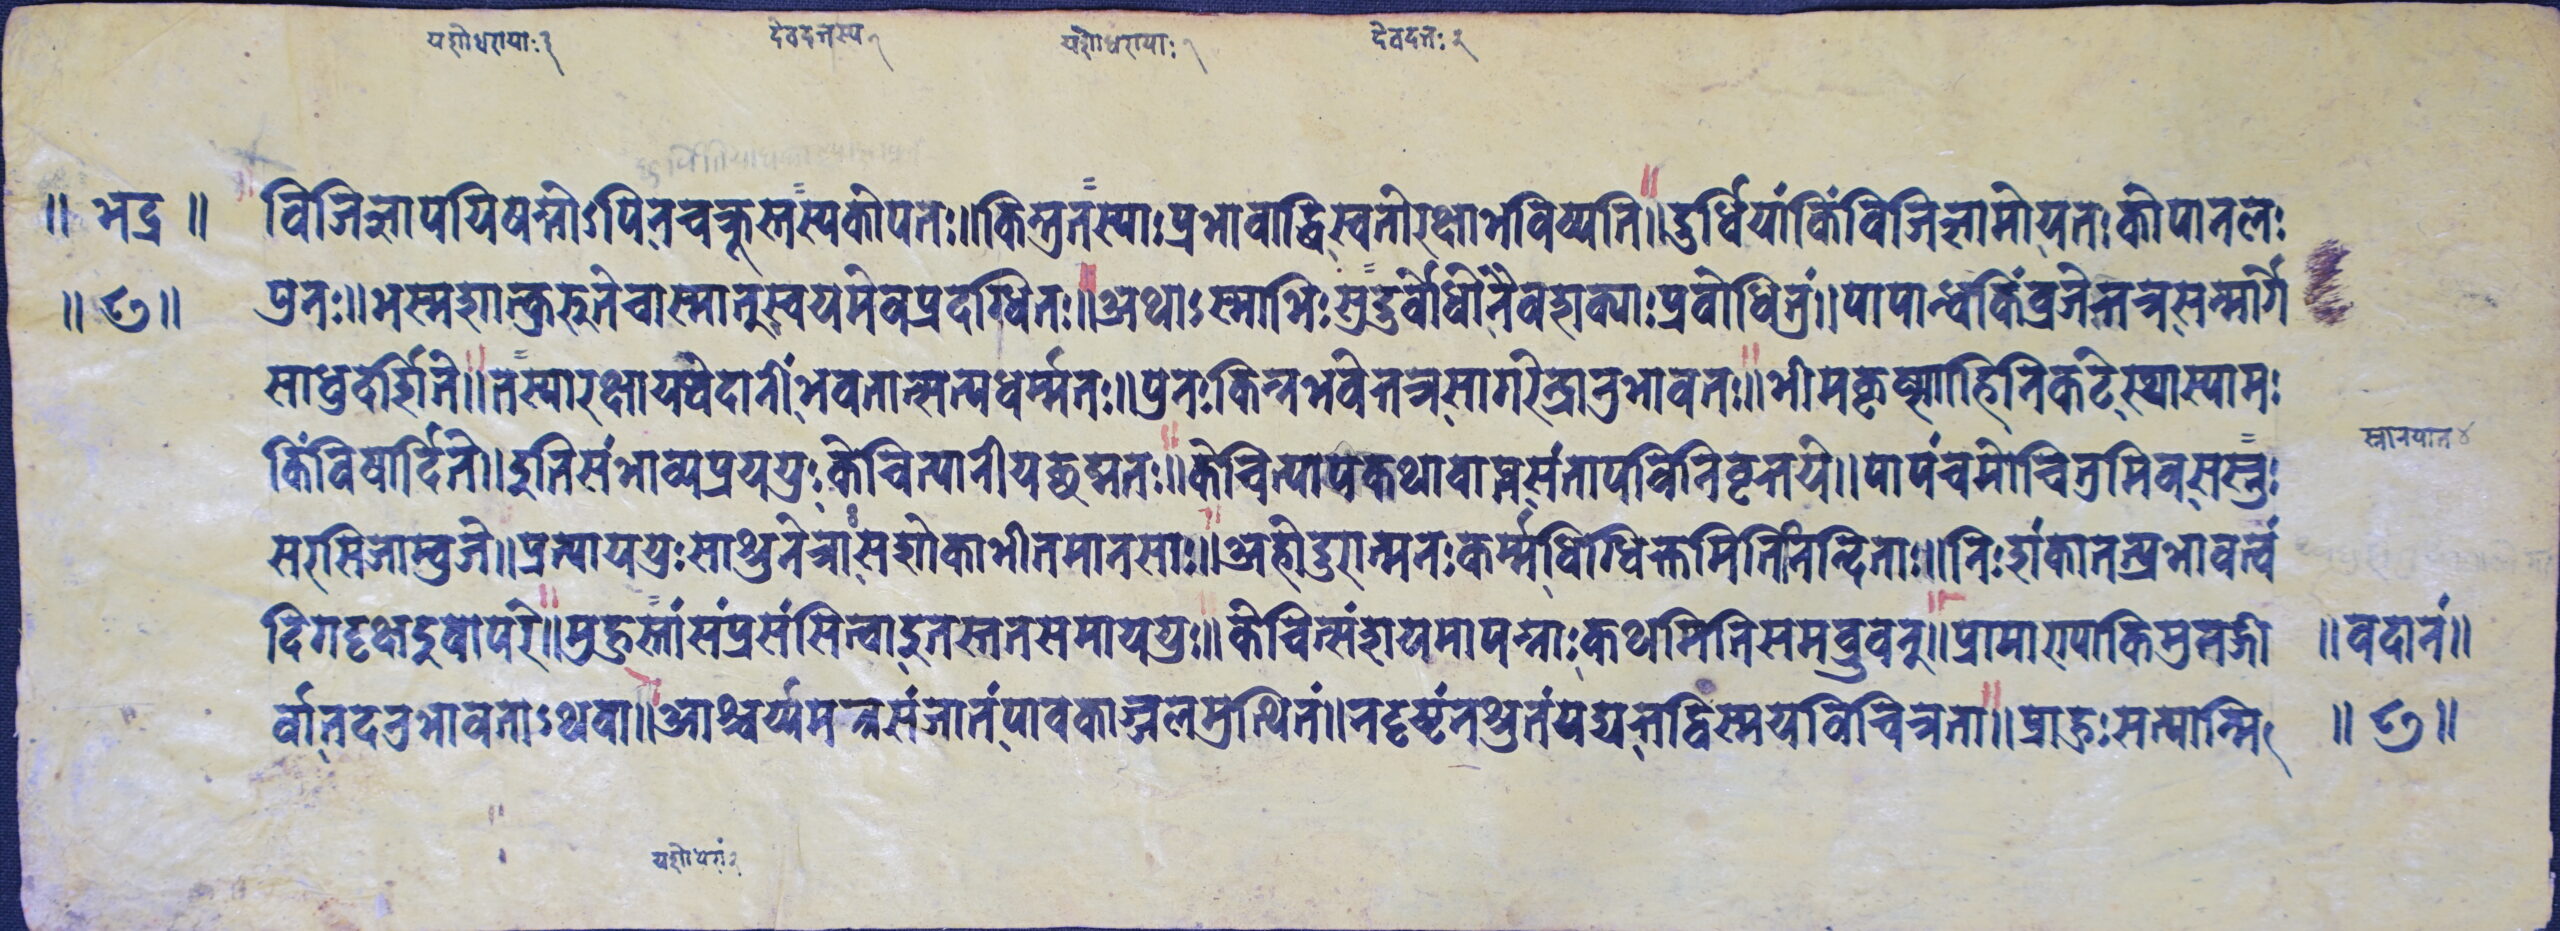 यशोधरायाः १ देवदत्तस्य १ यशोधरायाः १ देवदत्तः २
॥ भद्र ॥ विजिज्ञापयिषन्तोऽपिनचक्रूस्तस्यकोपतः॥किन्तुतस्याःप्रभावाद्धिस्वतोरक्षाभविष्यति॥दुर्धियांकिंविजिज्ञामोयतःकोपानलः
॥ ७ ॥ पुनः॥भस्मशात्कुरुतेचास्मान्स्वयमेवप्रदग्धितः॥अथाऽस्माभिःसुदुर्वोधोनैवशक्याःप्रवोधितुं॥पापान्धकिंव्रजेत्तत्रसन्मार्गे
साधुदर्शिते॥तस्यारक्षायथैदानींभवतात्सत्यधर्म्मतः॥पुनःकिन्नभवेत्तत्रसागरेन्द्रानुभावतः॥भीमकृष्णाहिनिकटेस्थास्यामः
किंविषार्दिते॥इतिसंभाव्यप्रययुःकेचित्पानीयछद्मतः॥केचित्पापकथावाप्तसंतापविनिवृत्तये॥पापंचमोचितुमिवसस्नुः
स्नानपान ४
सरसिजाम्बुजे॥प्रत्याययुःसाश्रुनेत्राःसशोकाभीतमानसाः॥अहोदुरात्मनःकर्म्मधिग्धिक्तमितिनिन्दिताः॥निःशंकातत्प्रभावत्वं
दिगदृक्षदुषोपरे॥मुहुस्तांसंप्रसंसित्वाद्रुतस्ततसमाययुः॥केचित्संशयमापन्नाःकथमितिसमव्रुवन्॥प्रामारापाकिमुतजी ॥ वदानं ॥
र्वातदनुभावतोऽथवा॥आश्चर्य्यमत्रसंजातंपावकाज्जलमुत्थितं॥नदृष्टंनश्रुतंयद्यत्तद्विस्मयविचित्रता॥प्राहुःसत्यान्मि ॥ ७ ॥
यशोधरां २